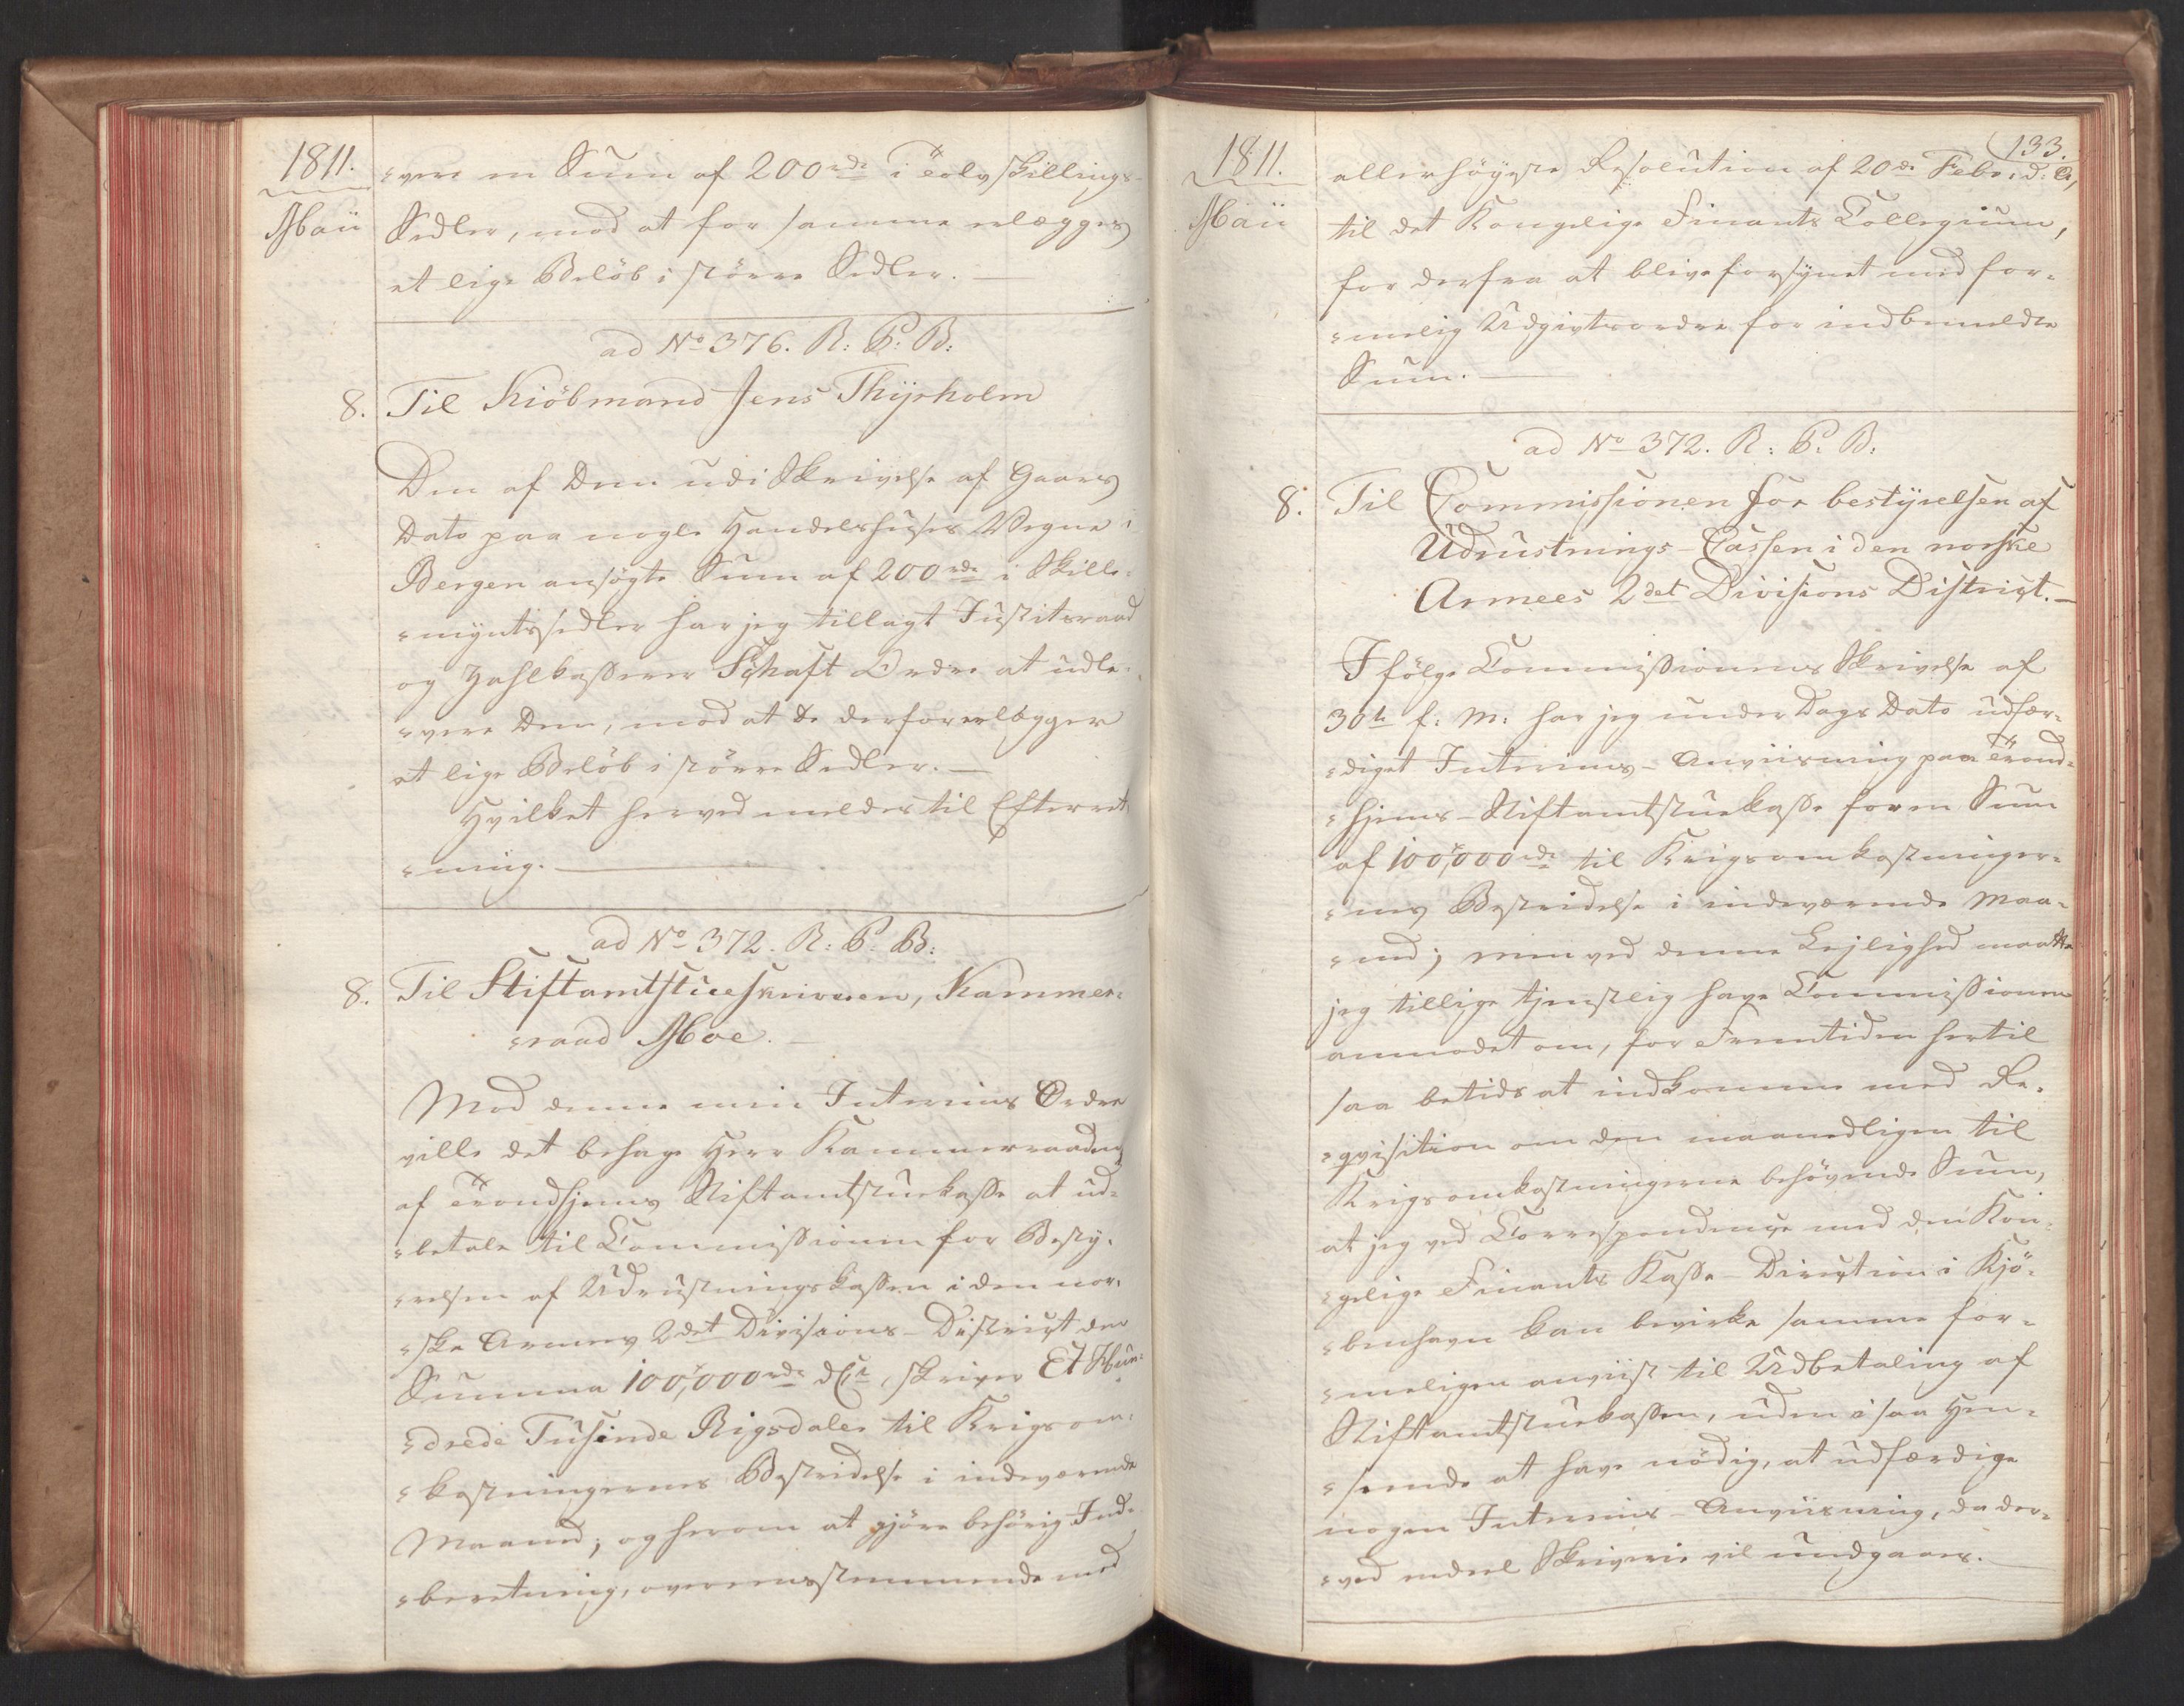 1811.
Maii
"vere en Sum af 200 rdr i Tolvskillings-
Sedler, mod at for samme erlægges
et lige Beløb i større Sedler. —
ad No 376. R: P: B:
8. Til Kiöbmand Jens Thyrholm
Den af Dem udi Skrivelse af Gaars
Dato paa nogle Handelshuses Vegne i
Bergen ansøgte Sum af 200 rdr i Skille-
"myntssedler har jeg tillagt Justitsraad
og Zahlkasserer Schaft Ordre at udle-
"vere Dem, mod at De derfor erlægger
et lige Beløb i større Sedler. —
Hvilket herved meldes til Efterret-
"ning. —
ad No 372. R: P: B:
8. Til Stiftamtstueskriveren, Kammer-
"raad Moe. —
Mod denne min Interims Ordre
ville det behage Herr Kammerraaden
af Trondhjems Stiftamtstuekasse at ud-
"betale til Commissionen for Besty-
"relsen af Udrustningskassen i den nor-
"ske Armees 2det Divisions-District den
Summa 100,000 rdr dCt, skriver Et Hun-
"drede Tusinde Rigsdaler til Krigsom-
"kostningernes Bestridelse i indeværende
Maaned; og herom at gjøre behørig Ind-
"beretning, overeensstemmende med
133.
1811.
Maii
allerhøyeste Resolution af 20de Febr: d: A,
til det Kongelige Finants Collegium,
for derfra at blive forsynet med for-
"melig Udgivtsordre for indbemeldte
Sum. —
ad No 372. R: P: B:
8. Til Commissionen for bestyrelsen af
Udrustnings-Cassen i den norske
Armees 2det Divisions District. —
Ifølge Commissionens Skrivelse af
30te f: M: har jeg under Dags Dato udfær-
"diget Interims-Anviisning paa Trond-
"hjems-Stiftamtstuekasse for en Sum
af 100,000 rdr til Krigsomkostninger-
"nes Bestridelse i indeværende Maa-
"ned; men ved denne Lejlighed maatte
jeg tillige tjenstlig have Commissionen
anmodet om, for Fremtiden hertil
saa betids at indkomme med Re-
"qvisition om den maanedligen til
Krigsomkostningerne behøvende Sum,
at jeg ved Correspondence med den Kon-
"gelige Finants Kasse-Direction i Kjø-
"benhavn kan bevirke samme for-
"meligen anviist til Udbetaling af
Stiftamtstuekassen, uden i saa Hen-
"seende at have nödig, at udfærdige
nogen Interims-Anviisning, da der-
"ved endeel Skriverie vil undgaaes.